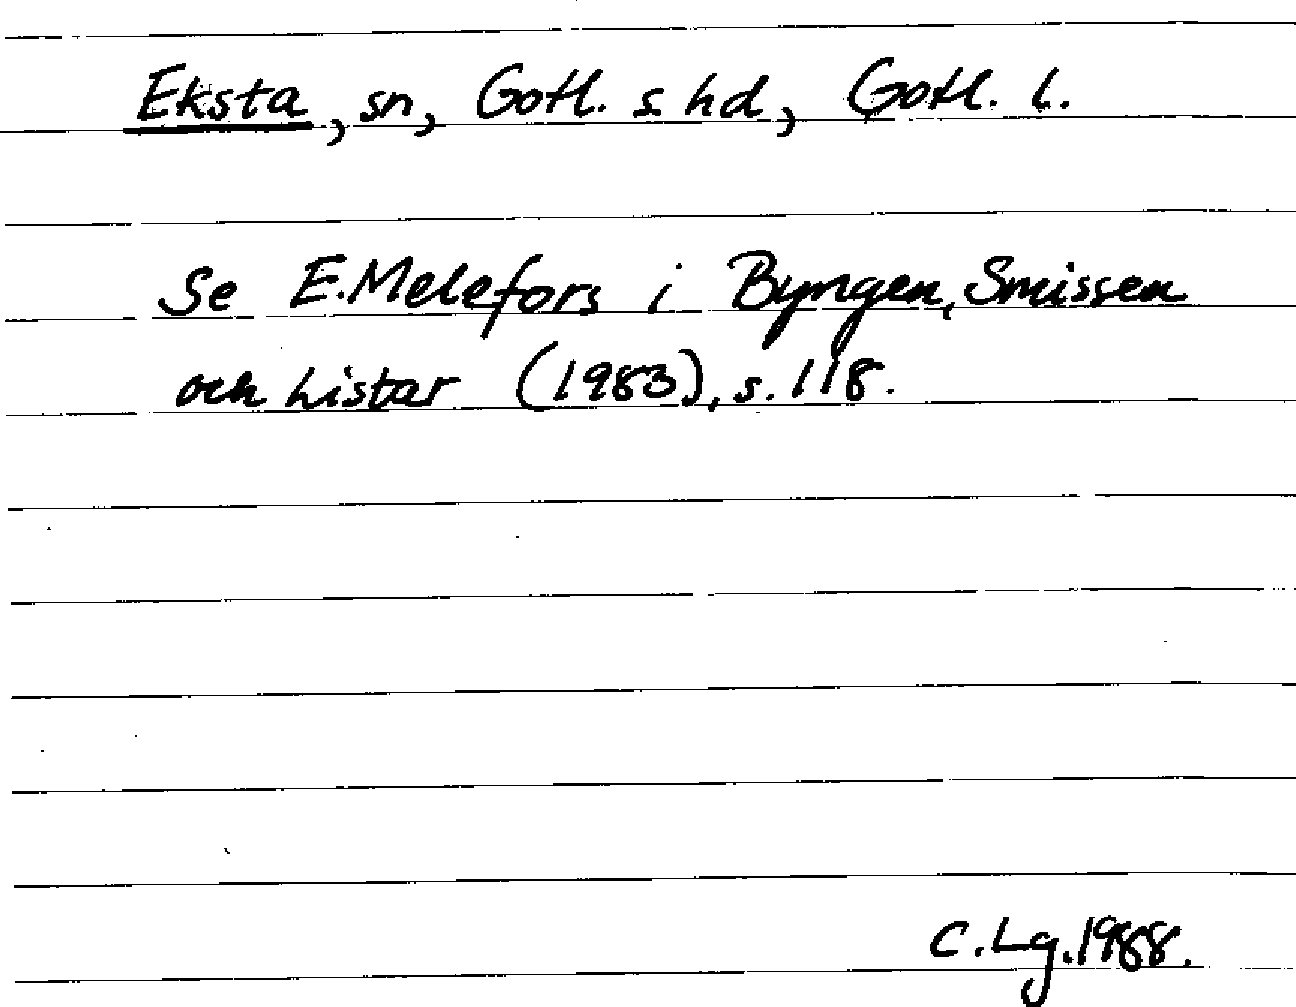 Eksta, sn, Gotl. s hd, Gotl. l.
Se E. Melefors i Byngen, Smissen
och Listar (1983), s. 118.
C. Lg. 1988.